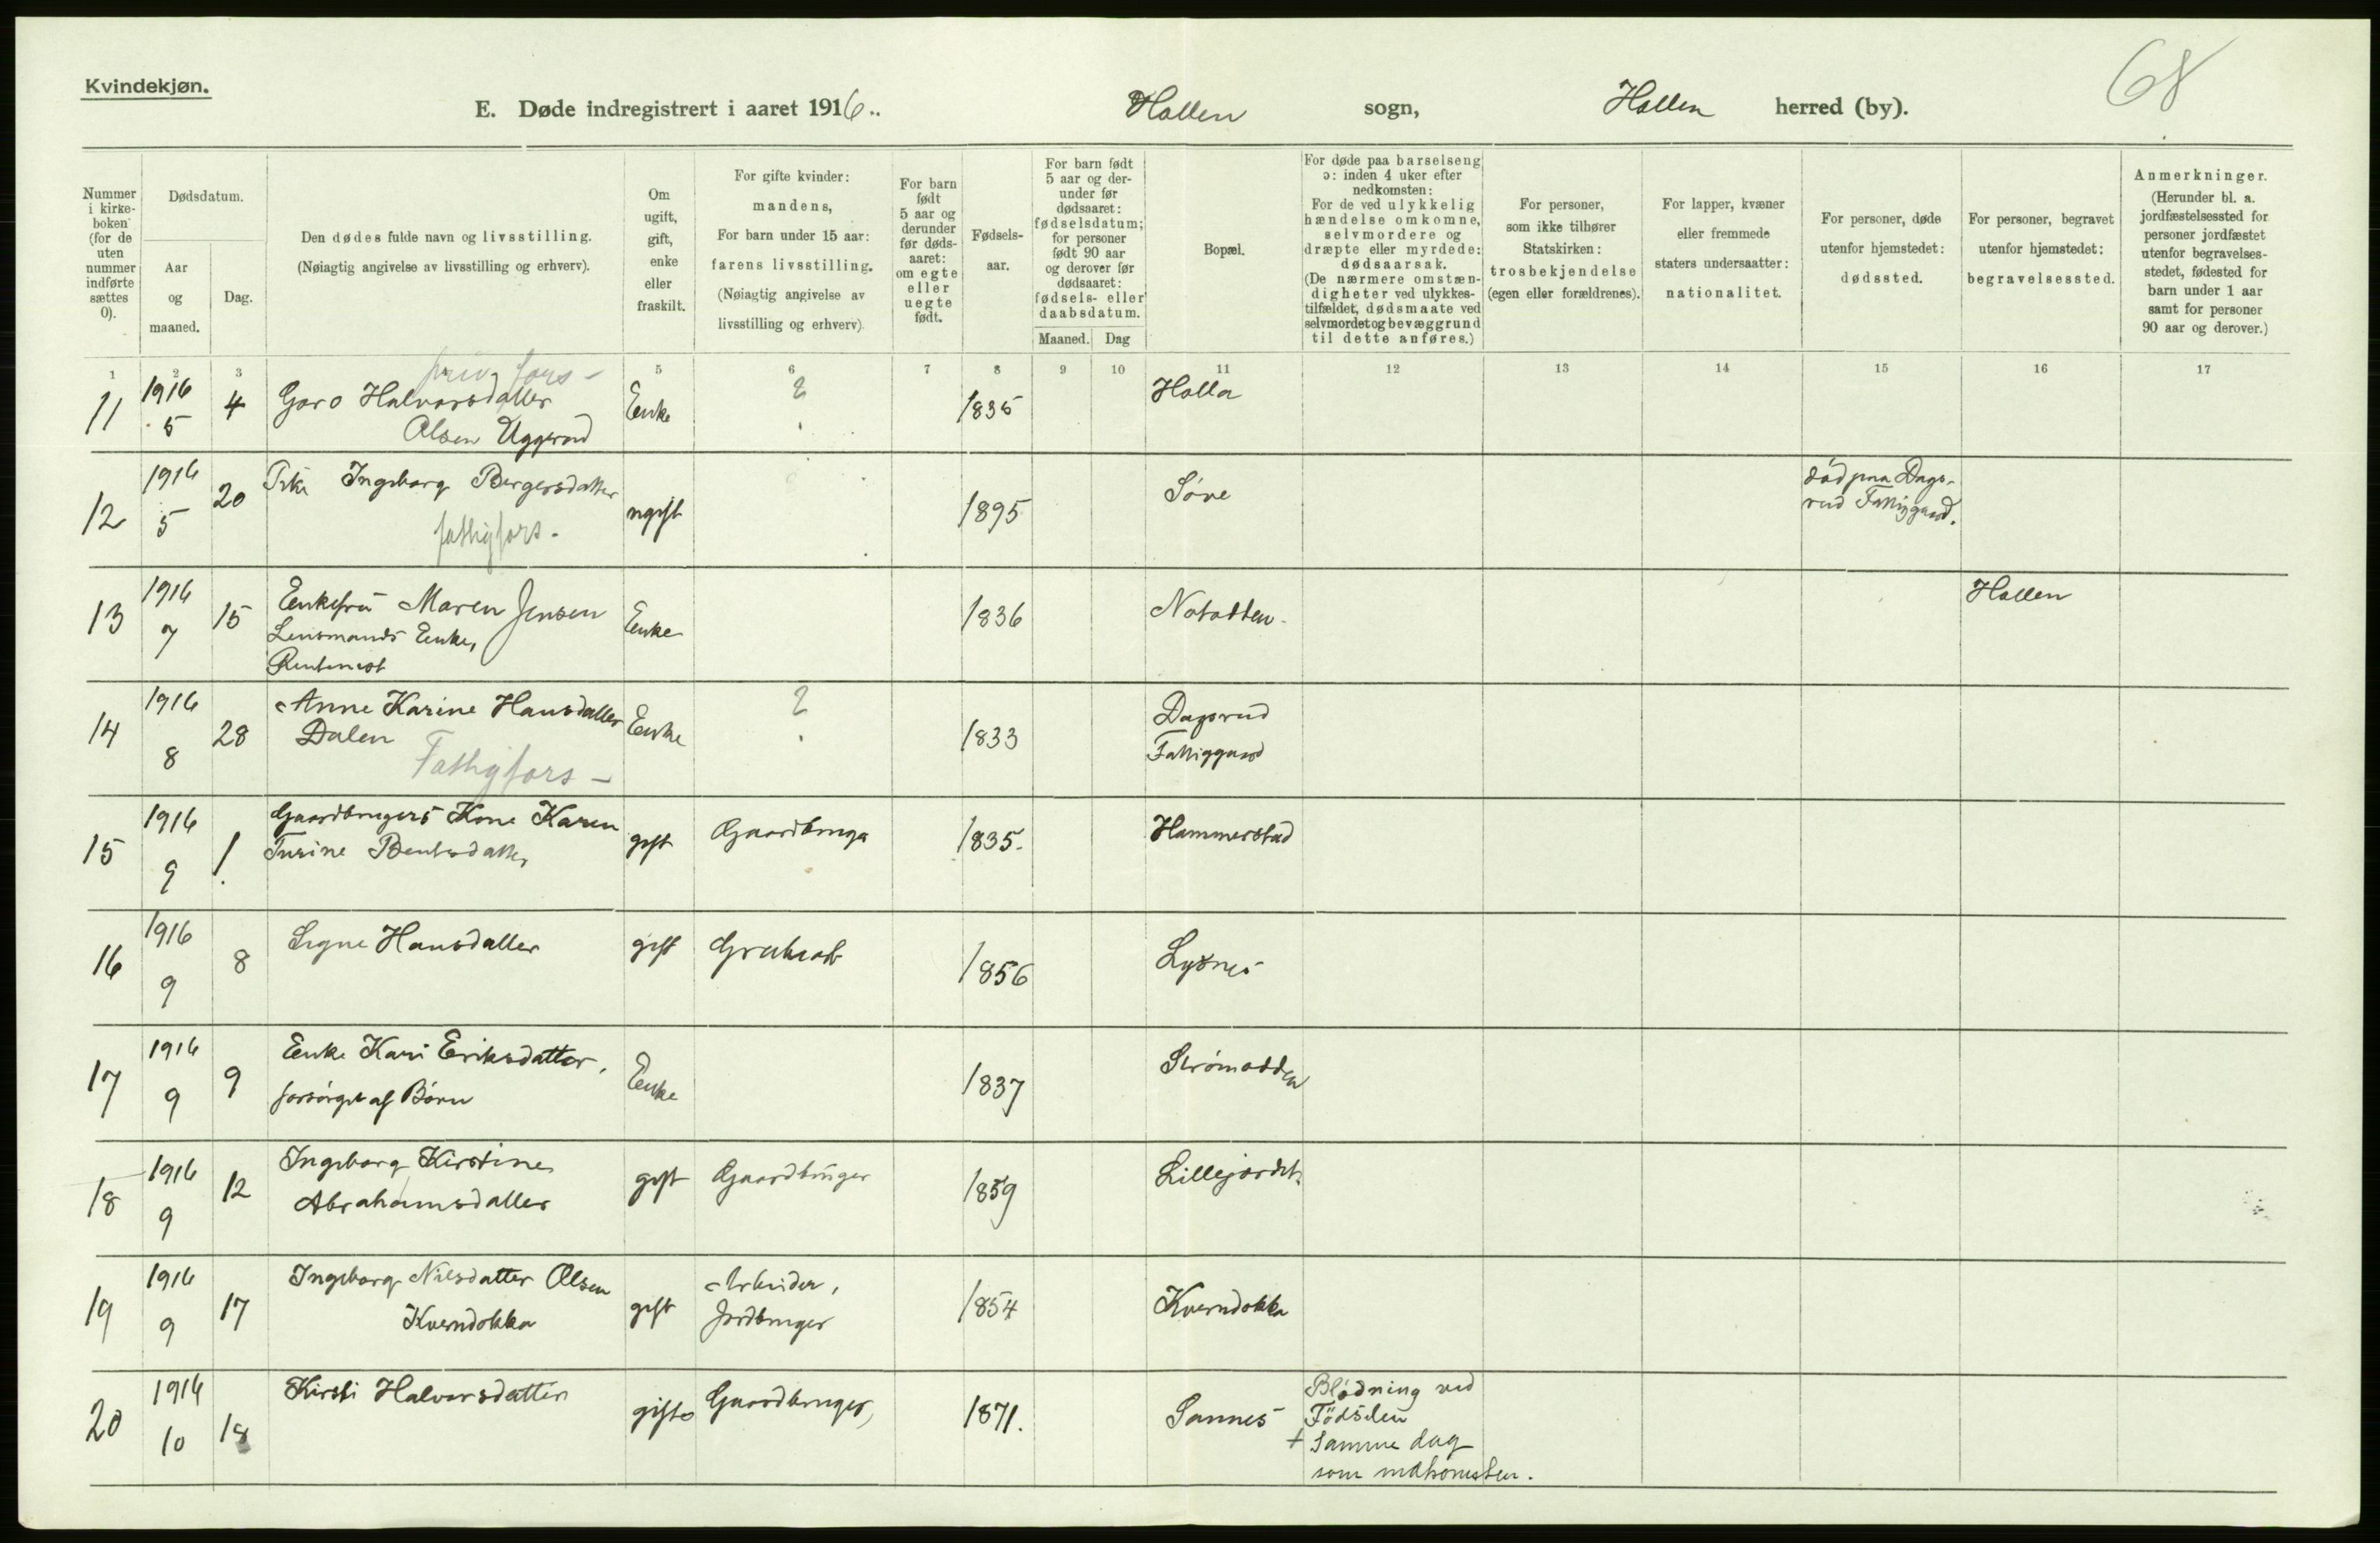 Kvindekjøn.
68
E. Døde indregistrert i aaret 1916.. Hollen sogn, Hollen herred (by).
Nummer i kirke-boken (for de uten nummer indførte sættes 0).
Dødsdatum.
Aar og maaned.
Dag.
Den dødes fulde navn og livsstilling.
(Nøiagtig angivelse av livsstilling og erhverv).
Om ugift, gift, enke eller fraskilt.
For gifte kvinder: mandens,
For barn under 15 aar: farens livsstilling.
(Nøiagtig angivelse av livsstilling og erhverv)
For barn født 5 aar og derunder før døds-aaret: om egte eller uegte født.
Fødsels-aar.
For barn født 5 aar og der-under før dødsaaret: fødselsdatum; for personer født 90 aar og derover før dødsaaret: fødsels- eller daabsdatum.
Maaned. Dag
Bopæl.
For døde paa barselseng ɔ: inden 4 uker efter nedkomsten:
For de ved ulykkelig hændelse omkomne, selvmordere og dræpte eller myrdede: dødsaarsak.
(De nærmere omstæn-digheter ved ulykkes-tilfældet, dødsmaate ved selvmordet og bevæggrund til dette anføres.)
For personer, som ikke tilhører Statskirken: trosbekjendelse (egen eller forældrenes).
For lapper, kvæner eller fremmede staters undersaatter: nationalitet.
For personer, døde utenfor hjemstedet: dødssted.
For personer, begravet utenfor hjemstedet: begravelsessted.
Anmerkninger.
(Herunder bl. a. jordfæstelsessted for personer jordfæstet utenfor begravelses-stedet, fødested for barn under 1 aar samt for personer 90 aar og derover.)
1 2 3 5 6 7 8 9 10 11 12 13 14 15 16 17
priv. fors -
11 1916 5 4 Goro Halvorsdatter Enke ? 1835 Holla
Olsen Uggerud
12 1916 5 20 Pike Ingeborg Bergersdatter ugift 1895 Söve död paa Dags-
fattigfors. rud Fattiggaard.
13 1916 7 15 Enkefrü Maren Jensen Enke 1836 Notodden Hollen
Lensmands Enke,
14 1916 8 28 Anne Karine Hansdatter Enke ? 1833 Dagsrud
Dalen Fattiggaard
Fattigfors -
15 1916 9 1 Gaardbrugers Kone Karen gift Gaardbruger 1835. Hammerstad
Turine Bentsdatter
16 1916 9 8 Signe Hansdatter gift 1856 Lysnes
17 1916 9 9 Enke Kari Eriksdatter, Enke 1837 Strömodden
forsörget af Börn
18 1916 9 12 Ingeborg Kirstine gift Gaardbrüger 1859 Lillejordet.
Abrahamsdatter
19 1916 9 17 Ingeborg Nilsdatter Olsen gift Arbeider, 1854 Kverndokka
Kverndokka Jordbruger
20 1916 10 18 Kirsti Halvorsdatter gift Gaardbruger, 1871. Sannes Blödning ved
Födselen
+ samme dag
som